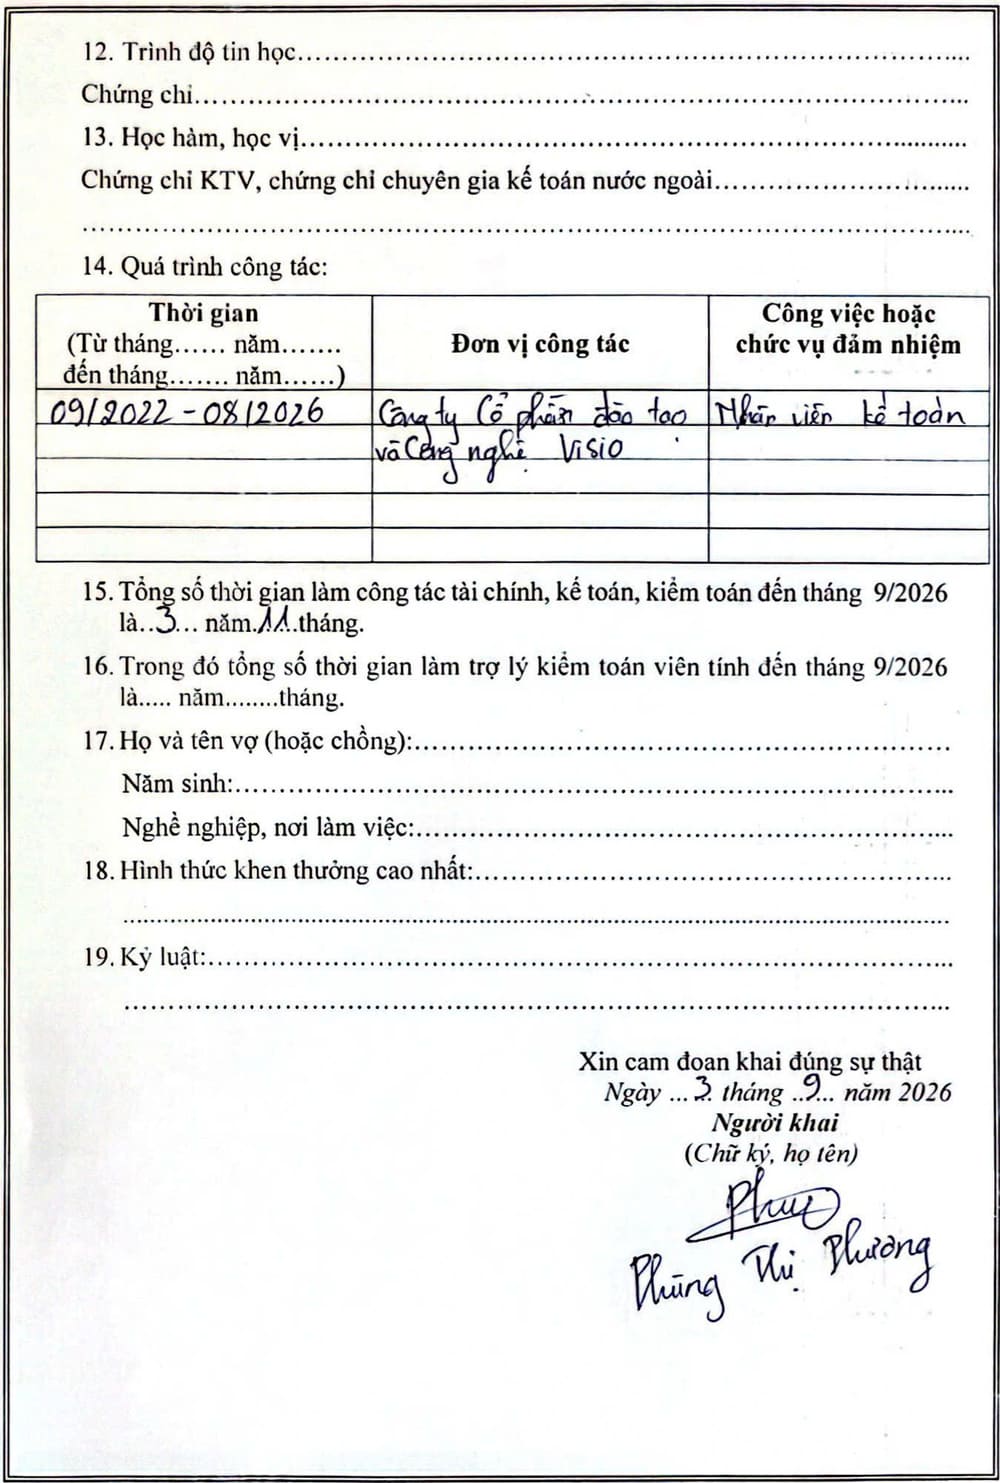 12. Trình độ tin học……………………………………………………………………...
Chứng chỉ……………………………………………………………………………...
13. Học hàm, học vị……………………………………………………………...........
Chứng chỉ KTV, chứng chỉ chuyên gia kế toán nước ngoài……………………….......
………………………………………………………………………………………....
14. Quá trình công tác:
Thời gian
(Từ tháng…… năm…….
đến tháng……. năm……)
Đơn vị công tác
Công việc hoặc
chức vụ đảm nhiệm
09/2022 - 08/2026
Công ty Cổ phần đào tạo
và Công nghệ Visio
Nhân viên kế toán
15. Tổng số thời gian làm công tác tài chính, kế toán, kiểm toán đến tháng 9/2026
là..3... năm.11..tháng.
16. Trong đó tổng số thời gian làm trợ lý kiểm toán viên tính đến tháng 9/2026
là..... năm........tháng.
17. Họ và tên vợ (hoặc chồng):………………………………………………………
Năm sinh:……………………………………………………………………………...
Nghề nghiệp, nơi làm việc:…………………………………………………………...
18. Hình thức khen thưởng cao nhất:…………………………………………………..
........................................................................................................................
19. Kỷ luật:……………………………………………………………………………..
……………………………………………………………………………………..
Xin cam đoan khai đúng sự thật
Ngày ...3. tháng ..9... năm 2026
Người khai
(Chữ ký, họ tên)
Phùng Thị Phương